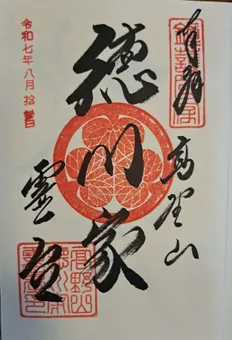 奉拝
高野山
徳川家
霊台
令和七年八月拾
高野山